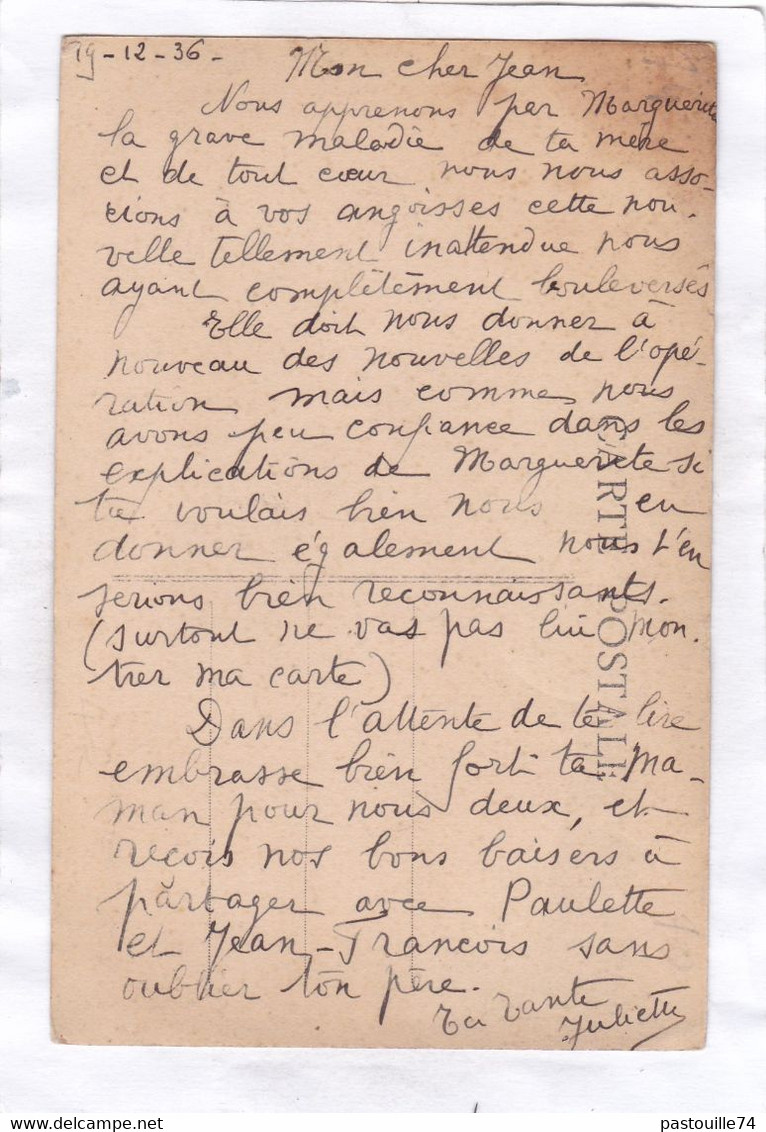 19-12-36-
Mon cher Jean
Nous apprenons par Marguerite
la grave maladie de ta mère
et de tout cœur nous nous asso-
cions à vos angoisses cette nou-
velle tellement inattendue nous
ayant complètement bouleversés
Elle doit nous donner à
nouveau des nouvelles de l'opé-
ration mais comme nous
avons peu confiance dans les
explications de Marguerite si
tu voulais bien nous en
donner également nous t'en
serions bien reconnaissants.
(surtout ne vas pas lui mon-
trer ma carte)
Dans l'attente de te lire
embrasse bien fort ta ma-
man pour nous deux, et
reçois nos bons baisers à
partager avec Paulette
et Jean-François sans
oublier ton père.
Ta Tante
Juliette
CARTE POSTALE
pastouille74